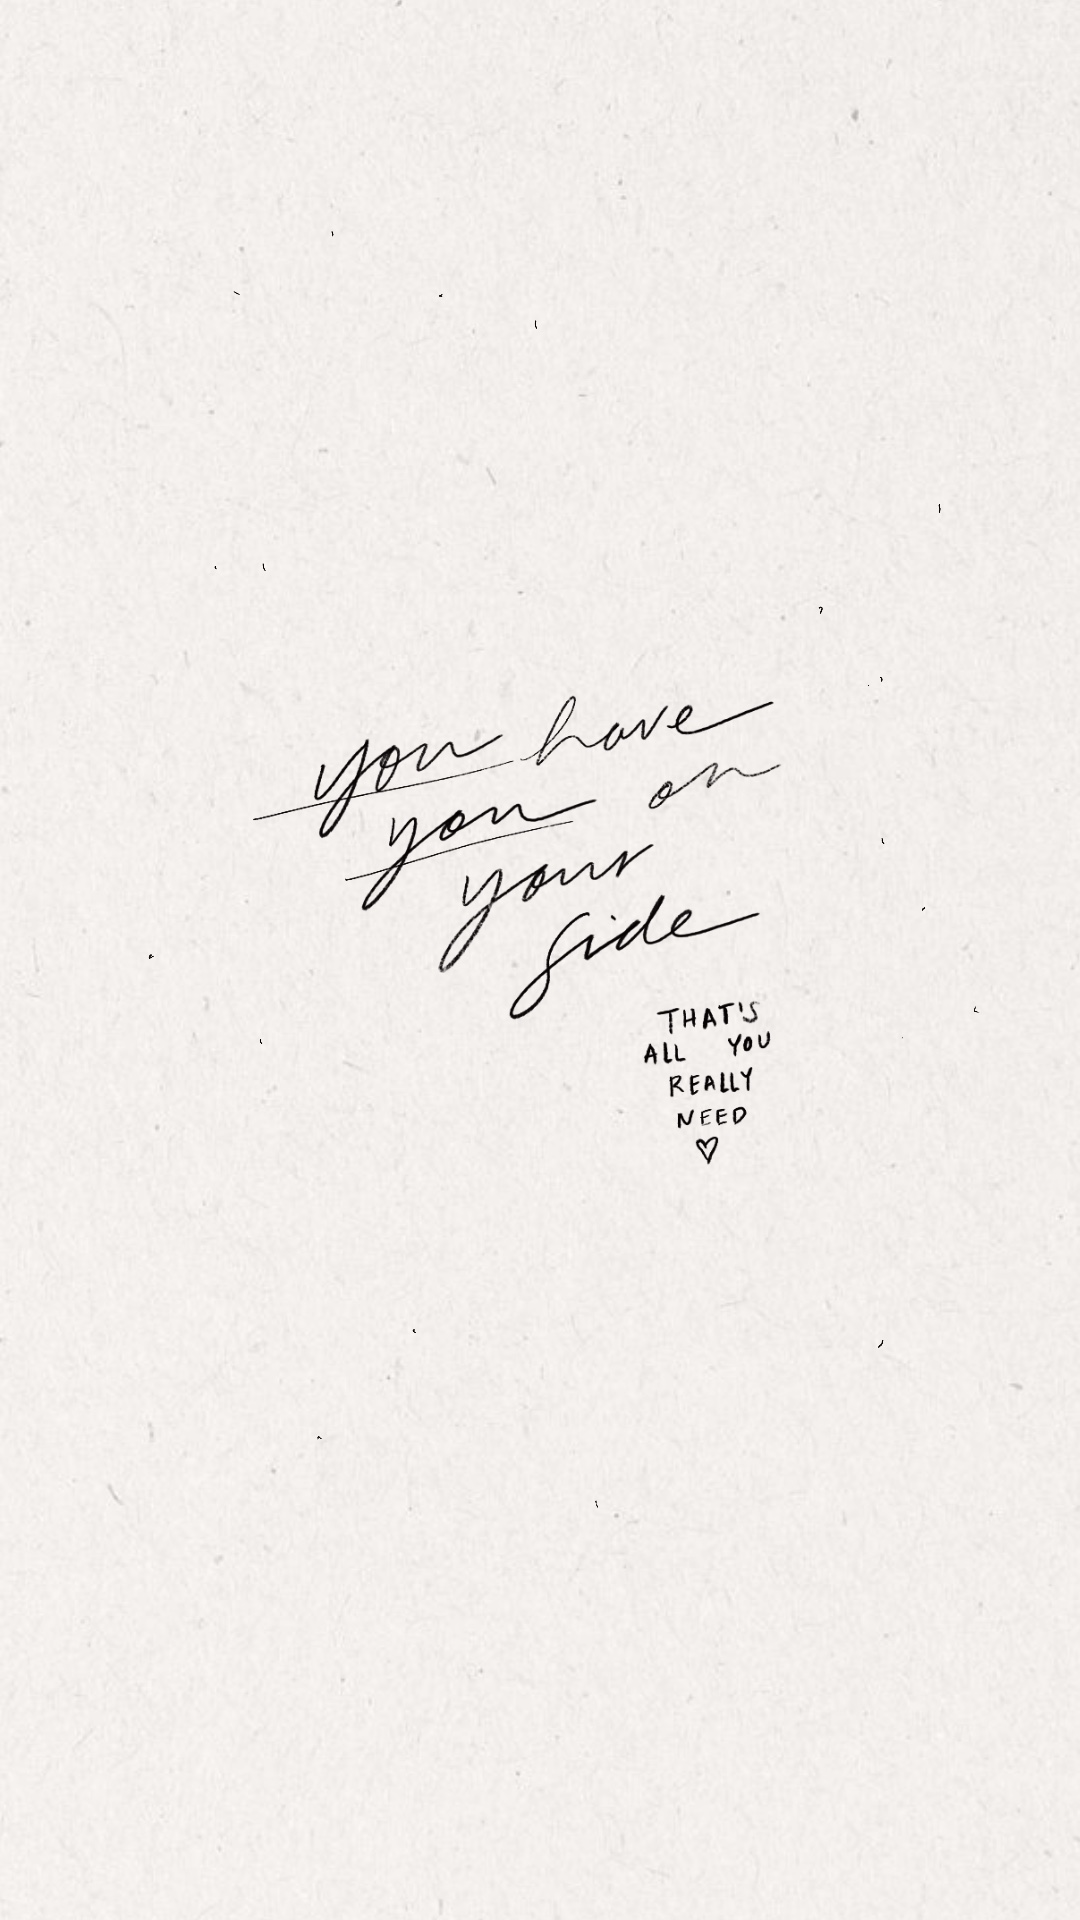 you have
you on
your
side
THAT'S
ALL YOU
REALLY
NEED